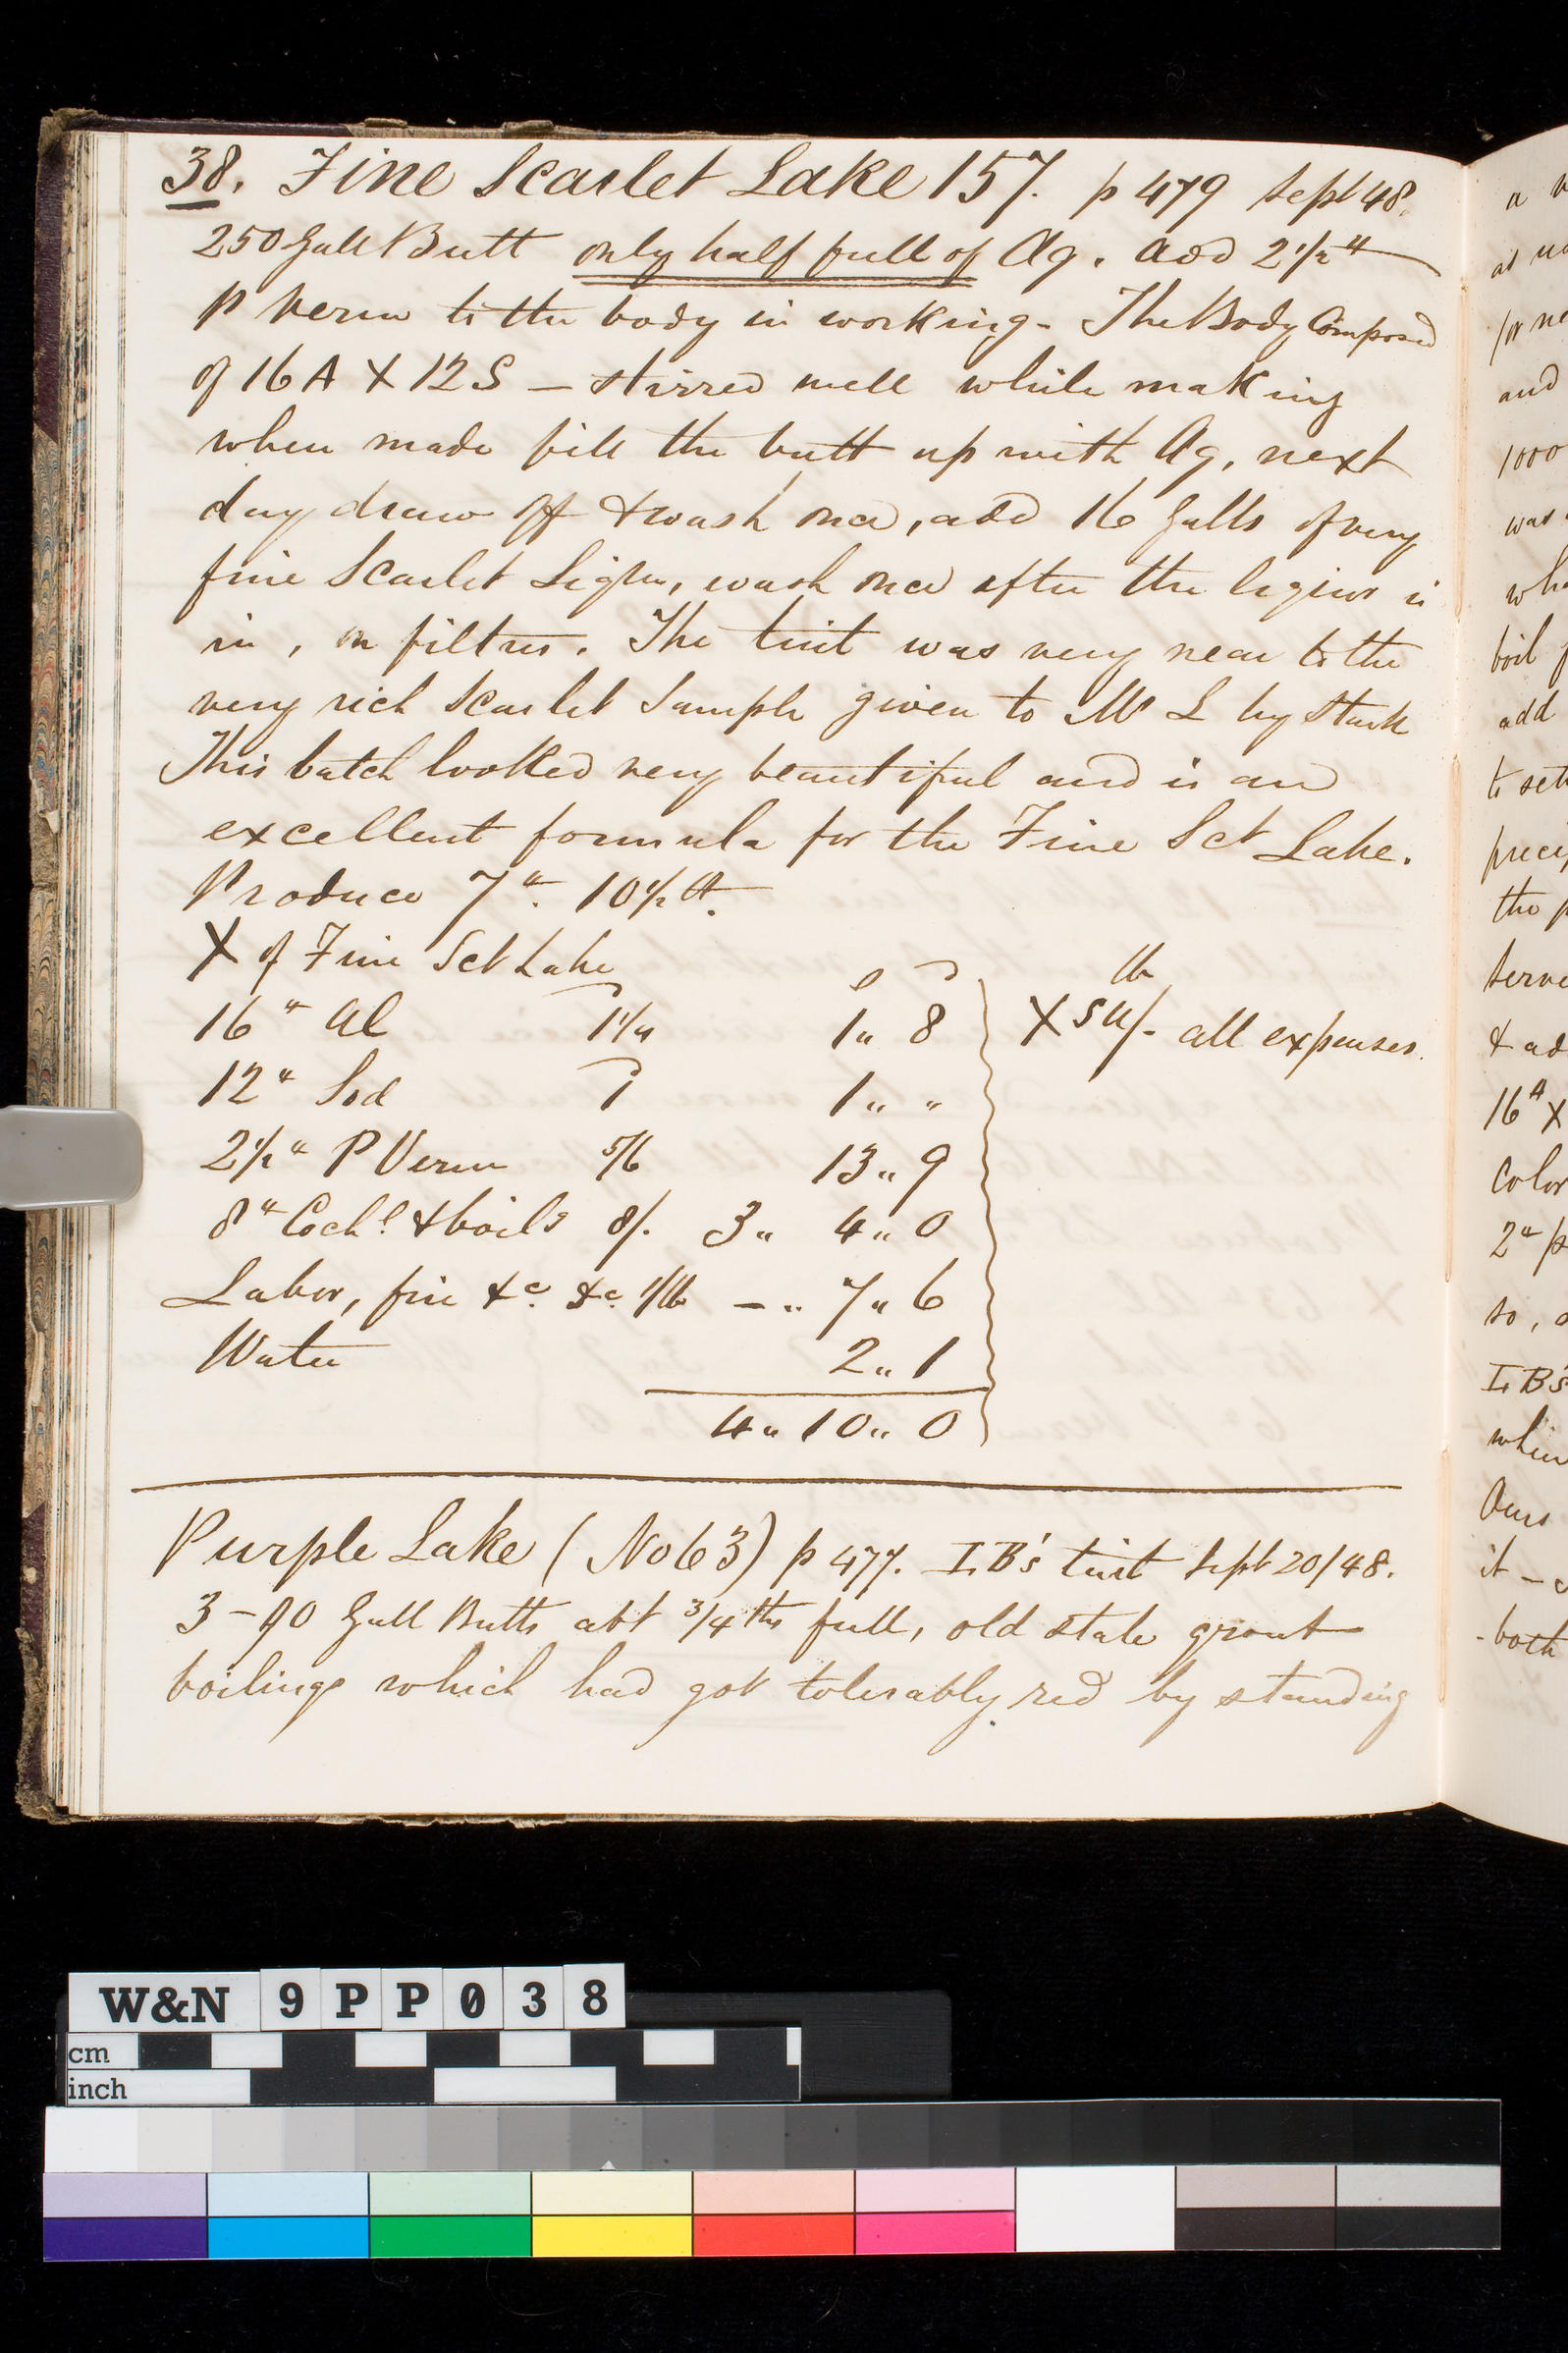 38. Fine Scarlet Lake 157. p 479 Sept 48.
250 Gall Butt only half full of Ag. add 2 1/2 "
P Verm to the body in working - The Body Composed
of 16 A X 12 S — stirred well while making
when made fill the butt up with Ag, next
day draw off & wash once, add 16 Galls of very
fine Scarlet Liqr, wash once after the liquor is
in, on filtres. The tint was very near to the
very rich Scarlet Sample given to Mr L by Stark
This batch looked very beautiful and is an
excellent formula for the Fine Sct Lake.
Produce 7 " 10 1/2
X of Fine Sct Lake
s d lb
16 " Al 1 1/4 1 " 8 X all expenses.
12 " Sod 1 1 " "
2 1/2 " P Verm 5/6 13 " 9
8 " Cochl & boilg 8/. 3 " 4 " 0
Labor, fire &c. &c. 1/lb — " 7 " 6
Water 2 " 1
4 " 10 " 0
Purple Lake (No 63) p 477. I.B's tint Sept 20/48.
3 - 90 Gall Butts abt 3/4ths full, old stale grout
boilings which had got tolerably red by standing
a
at
for
and
1000
was
wha
boil
add
to
the
serve
& ad
16 A X
Color
2 " p
so,
I. B's
when
Ours
it —
both
W&N 9PP038
cm
inch